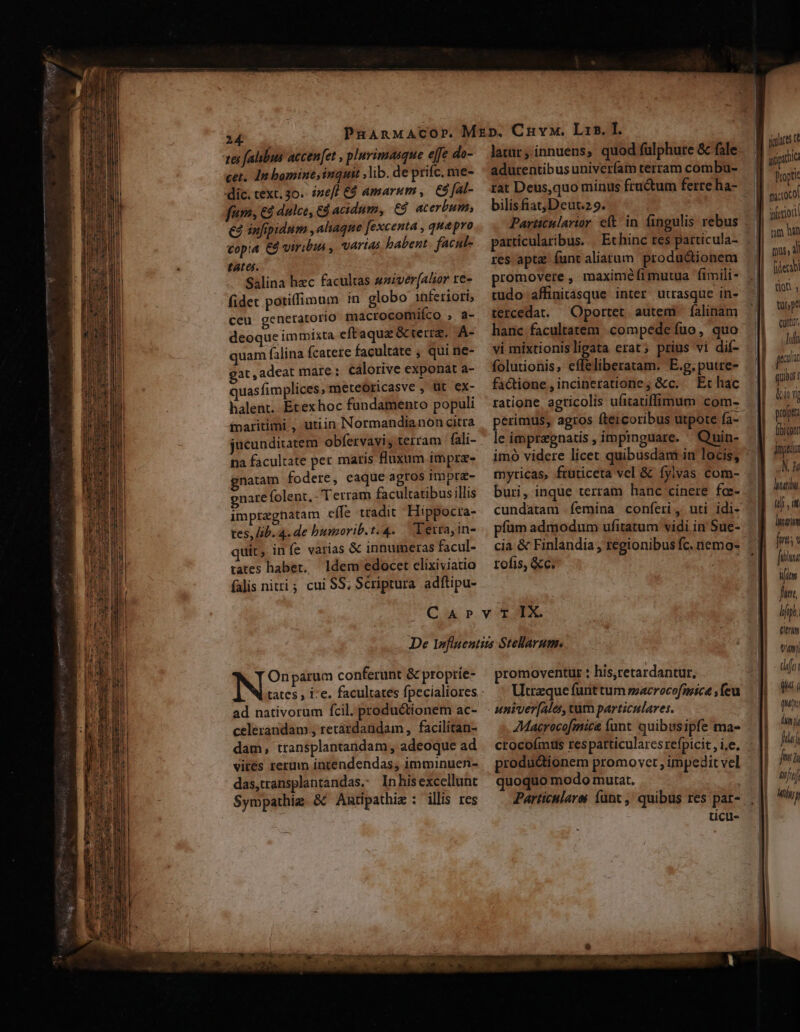 24 PHARMACOP. MED. CHYM. LIB. I.
tes ſalibus accenſet, plurimasque eſſe do-
cet. In homine, inquit, lib. de priſc. me-
dic. text. 30. ineſt & amarum, & ſal-
ſum, & dulce, & acidum, & acerbum,
& inſipidum, aliaque ſexcenta, quæ pro
copia & viribus, varias habent facul-
tates.
Salina hæc facultas univerſalior re-
ſidet potiſſimum in globo inferiori,
ceu generatorio macrocomiſco, a-
deoque immixta eſt aquæ & terræ. A-
quam ſalina ſcatere facultate, qui ne-
gat, adeat mare: calorive exponat a-
quas ſimplices, meteóricasve, ut ex-
halent. Et ex hoc fundamento populi
maritimi, uti in Normandia non citra
jucunditatem obſervavi, terram ſali-
na facultate per maris fluxum impræ-
gnatam fodere, eaque agros impræ-
gnare ſolent. Terram facultatibus illis
imprægnatam eſſe tradit Hippocra-
tes, lib. 4. de humorib. t. 4. Terra, in-
quit, in ſe varias & innumeras facul-
tates habet. Idem edocet elixiviatio
ſalis nitri; cui SS. Scriptura adſtipu-
latur, innuens, quod ſulphure & ſale
adurentibus univerſam terram combu-
rat Deus, quo minus fructum ferre ha-
bilis fiat, Deut. 29.
Particularior eſt in ſingulis rebus
particularibus. Et hinc res particula-
res aptæ ſunt aliarum productionem
promovere, maximè ſi mutua ſimili-
tudo affinitasque inter utrasque in-
tercedat. Oportet autem ſalinam
hanc facultatem compede ſuo, quo
vi mixtionis ligata erat, prius vi diſ-
ſolutionis, eſſe liberatam. E. g. putre-
factione, incineratione, &c. Et hac
ratione agricolis uſitatiſſimum com-
perimus, agros ſtercoribus utpote ſa-
le imprægnatis, impinguare. Quin-
imò videre licet quibusdam in locis,
myricas, fruticeta vel & ſylvas com-
buri, inque terram hanc cinere fœ-
cundatam ſemina conſeri, uti idi-
pſum admodum uſitatum vidi in Sue-
cia & Finlandia, regionibus ſc. nemo-
roſis, &c.
CAPVT IX.
De Influentiis Stellarum.
NOn parum conferunt & proprie-
tates, i. e. facultates ſpecialiores
ad nativorum ſcil. productionem ac-
celerandam, retardandam, facilitan-
dam, transplantandam, adeoque ad
vires rerum intendendas, imminuen-
das, transplantandas. In his excellunt
Sympathiæ & Antipathiæ: illis res
promoventur: his, retardantur.
Utræque ſunt tum macrocoſmicæ, ſeu
univerſales, tum particulares.
Macrocoſmicæ ſunt quibus ipſe ma-
crocoſmus res particulares reſpicit, i. e.
productionem promovet, impedit vel
quoquo modo mutat.
Particulares ſunt, quibus res par-
ticu-